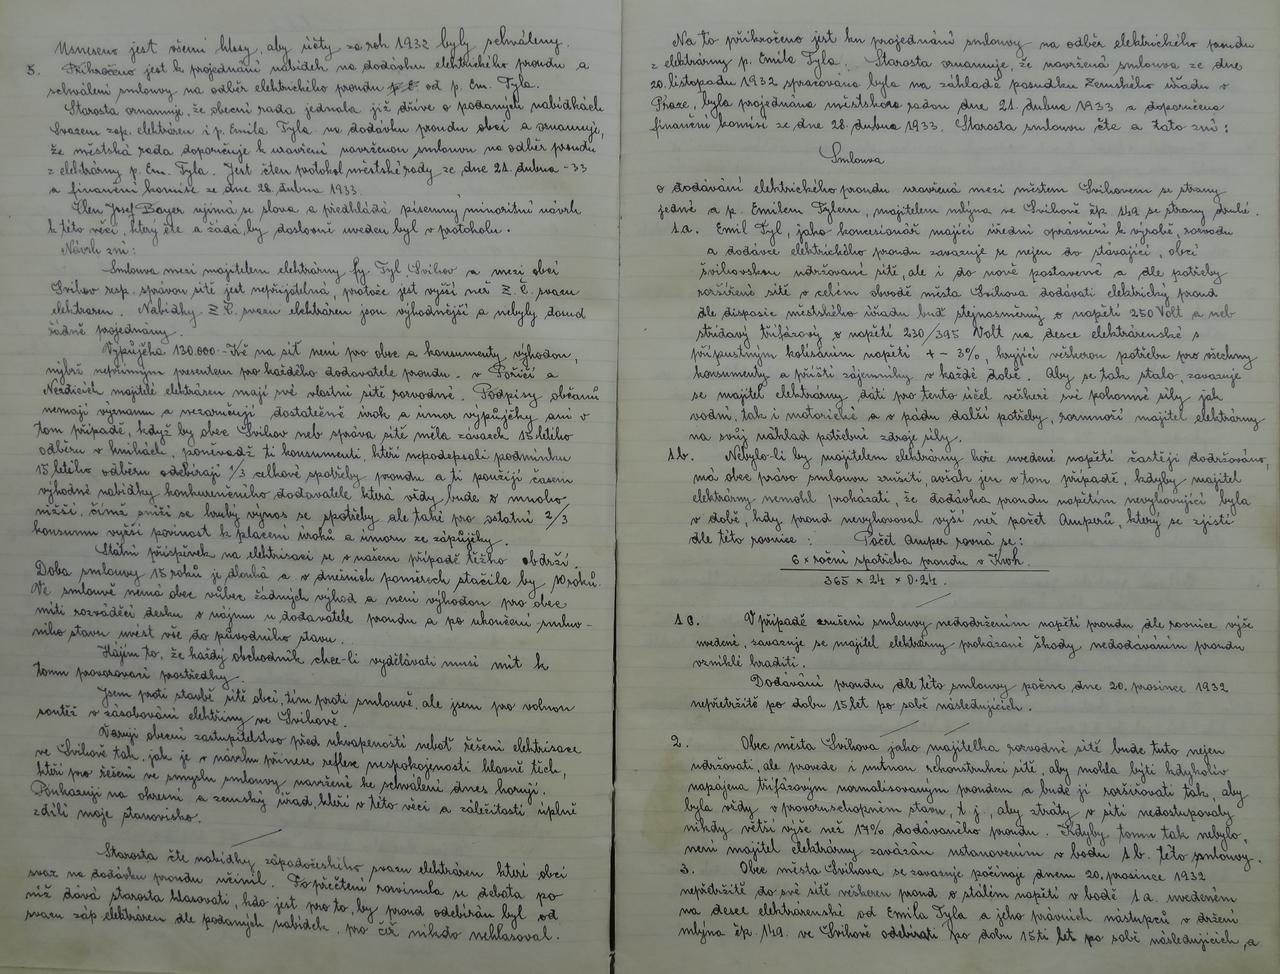 Usneseno jest všemi hlasy, aby účty za rok 1932 byly schváleny.
5. Přikročeno jest k projednání nabídek na dodávku elektrického proudu a
schválení smlouvy na odběr elektrického proudu od p. Em. Tyla.
Starosta oznamuje, že obecní rada jednala již dříve o podaných nabídkách
Svazem záp. elektráren i p. Emila Tyla na dodávku proudu obci a oznamuje,
že městská rada doporučuje k uzavření navrženou smlouvu na odběr proudu
z elektrárny p. Em. Tyla. Jest čten protokol městské rady ze dne 21. dubna -33
a finanční komise ze dne 28. dubna 1933.
Člen Josef Bayer ujímá se slova a předkládá písemný minoritní návrh
k této věci, který čte a žádá, by doslovně uveden byl v protokolu.
Návrh zní:
Smlouva mezi majitelem elektrárny fy. Tyl, Švihov a mezi obcí
Švihov resp. správou sítě jest nepřijatelná, protože jest vyšší než Z. Č. svazu
elektráren. Nabídky Z. Č. svazu elektráren jsou výhodnější a nebyly dosud
řádně projednány.
Výpůjčka 130.000.- Kč na síť není pro obec a konsumenty výhodou,
nýbrž nepřímým presentem pro každého dodavatele proudu. v Poříčí a
Nezdicích, majitelé elektráren mají své vlastní sítě rozvodné. Podpisy občanů
nemají významu a nezaručují dostatečně úrok a úmor výpůjčky ani v
tom případě, když by obec Švihov neb správa sítě měla závazek 15 letého
odběru v knihách, poněvadž ti konsumenti, kteří nepodepsali podmínku
15 letého odběru odebírají 1/3 celkové spotřeby proudu a ti použijí časem
výhodné nabídky konkurenčního dodavatele která vždy bude o mnoho
nižší, čímž sníží se hrubý výnos se spotřeby ale také pro ostatní 2/3
konsumu vyšší povinost k placení úroků a úmoru ze zápůjčky.
Státní příspěvek na elektrisaci se v našem případě těžko obdrží.
Doba smlouvy 15 roků je dlouhá a v dnešních poměrech stačila by 10 roků.
Ve smlouvě nemá obec vůbec žádných výhod a není výhodou pro obec
míti rozváděcí desku v nájmu u dodavatele proudu a po ukončení smluv-
ního stavu uvést vše do původního stavu.
Hájím to, že každý obchodník chce-li vydělávati musí mít k
tomu provozovací prostředky.
Jsem proti stavbě sítě obcí, tím proti smlouvě, ale jsem pro volnou
soutěž v zásobování elektřiny ve Švihově.
Varuji obecní zastupitelstvo před ukvapeností neboť řešení elektrisace
ve Švihově tak, jak je v návrhu přinese reflex nespokojenosti hlavně těch,
kteří pro řešení ve smyslu smlouvy navržené ke schválení dnes horují.
Poukazuji na okresní a zemský úřad, kteří v této věci a záležitosti úplně
sdílí moje stanovisko.
Starosta čte nabídky západočeského svazu elektráren které obci
svaz na dodávku proudu učinil. Po přečtení rozvinula se debata po
níž dává starosta hlasovati, kdo jest pro to, by proud odebírán byl od
svazu záp. elektráren dle podaných nabídek, pro čež nikdo nehlasoval.
Na to přikročeno jest ku projednání smlouvy na odběr elektrického proudu
z elektrárny p. Emila Tyla. Starosta oznamuje, že navržená smlouva ze dne
20. listopadu 1932 zpracována byla na základě posudku Zemského úřadu v
Praze, byla projednána městskou radou dne 21. dubna 1933 a doporučena
finanční komisí ze dne 28. dubna 1933. Starosta smlouvu čte a tato zní:
Smlouva
o dodávání elektrického proudu uzavřená mezi městem Švihovem se strany
jedné a p. Emilem Tylem, majitelem mlýna ve Švihově čp. 149 se strany druhé.
1.a. Emil Tyl, jako koncesionář mající úřední oprávnění k výrobě, rozvodu
a dodávce elektrického proudu zavazuje se nejen do stávající, obcí
švihovskou udržované sítě, ale i do nově postavené a dle potřeby
rozšířené sítě v celém obvodě města Švihova dodávati elektrický proud
dle disposic městského úřadu buď stejnosměrný o napětí 250 Volt a neb
střídavý třífázový o napětí 230/395 Volt na desce elektrárenské s
přípustným kolísáním napětí + - 3%, kryjící veškerou potřebu pro všechny
konsumenty a příští zájemníky v každé době. Aby se tak stalo, zavazuje
se majitel elektrárny dáti pro tento účel veškeré své pohonné síly jak
vodní, tak i motorické a v pádu další potřeby, rozmnoží majitel elektrárny
na svůj náklad potřebné zdroje síly.
1.b. Nebylo-li by majitelem elektrárny hoře uvedené napětí častěji dodržováno,
má obec právo smlouvu zrušiti, avšak jen v tom případě, kdyby majitel
elektrárny nemohl prokázati, že dodávka proudu napětím nevyhovující byla
v době, kdy proud nevyhovoval vyšší než počet Amperů, který se zjistí
dle této rovnice: Počet Amper rovná se:
6 x roční spotřeba proudu v Kwh.
365 x 24 x 0.24.
1 c. V případě zrušení smlouvy nedodržením napětí proudu, dle rovnice výše
uvedené, zavazuje se majitel elektrárny prokázané škody nedodáváním proudu
vzniklé hraditi.
Dodávání proudu dle této smlouvy počne dne 20. prosince 1932
nepřetržitě po dobu 15 let po sobě následujících.
2. Obec města Švihova jako majitelka rozvodné sítě bude tuto nejen
udržovati, ale provede i nutnou rekonstrukci sítě, aby mohla býti kdykoliv
napájena třífázovým normalisovaným proudem a bude ji rozšiřovati tak, aby
byla vždy v provozuschopném stavu, t. j., aby ztráty v síti nedostupovaly
nikdy větší výše než 17% dodávaného proudu. Kdyby tomu tak nebylo,
není majitel elektrárny zavázán ustanovením v bodu 1b. této smlouvy.
3. Obec města Švihova se zavazuje počínaje dnem 20. prosince 1932
nepřetržitě do své sítě veškeren proud o stálém napětí v bodě 1a. uvedeném
na desce elektrárenské od Emila Tyla a jeho právních nástupců v držení
mlýna čp. 149. ve Švihově odebírati po dobu 15ti let po sobě následujících, a